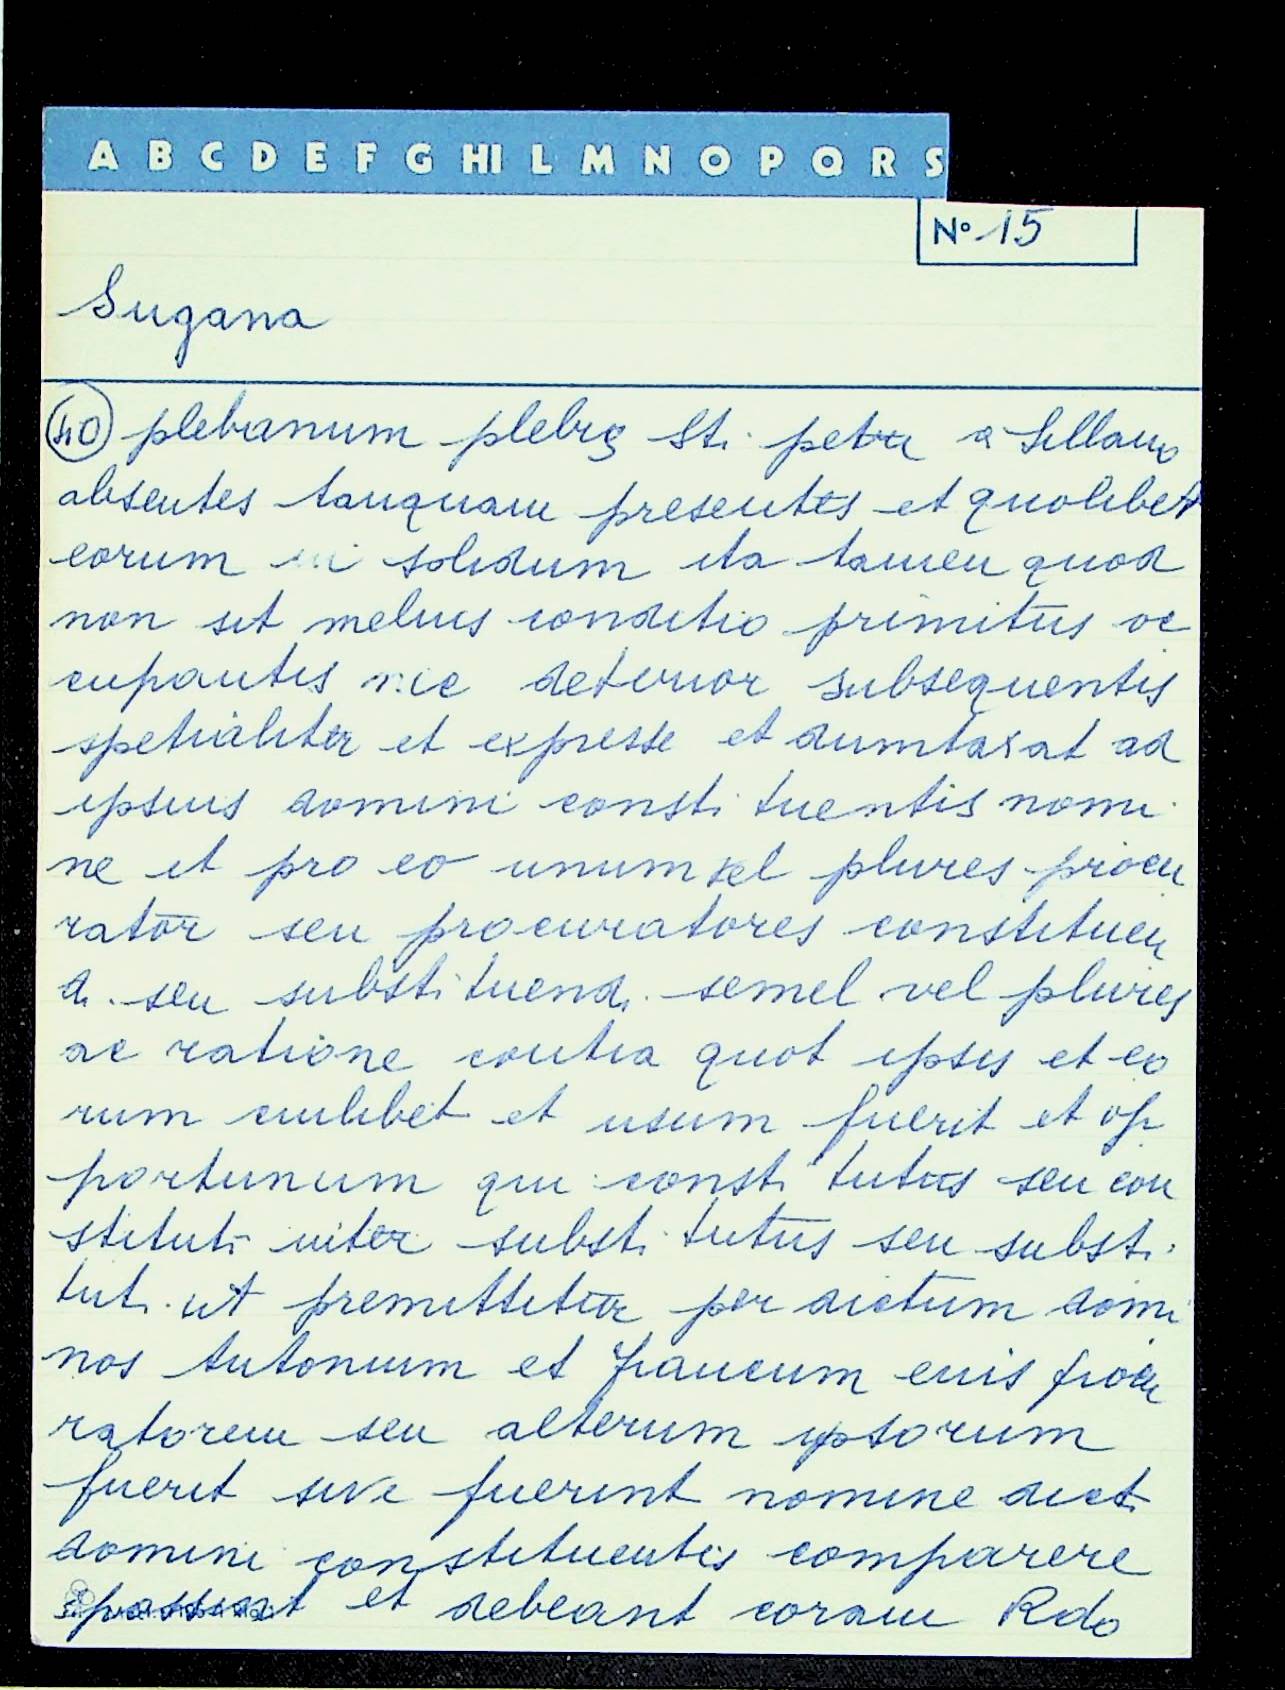 A B C D E F G HI L M N O P Q R S
N° 15
Sugana
40 plebanum plebis Sti. petri a Sillano
absentes tanquam presentes et quolibet
eorum in solidum ita tamen quod
non sit melius conditio primitus oc
cupantis nec deterior subsequentis
spetialiter et expresse et dumtaxat ad
ipsius domini constituentis nomi
ne et pro eo unum vel plures procu
rator seu procuratores constituen
di. seu substituendi. semel vel plures
ac ratione contra quot ipsis et eo
rum cuilibet et usum fuerit et op
portunum qui constitutus seu con
stituti inter substitutus seu substi
tuti. ut premittetur per dictum domi
nos Antonium et francum eius procu
ratorem seu alterum ipsorum
fuerit sive fuerint nomine dicti
domini constituentis comparere
possint et debeant coram Rdo